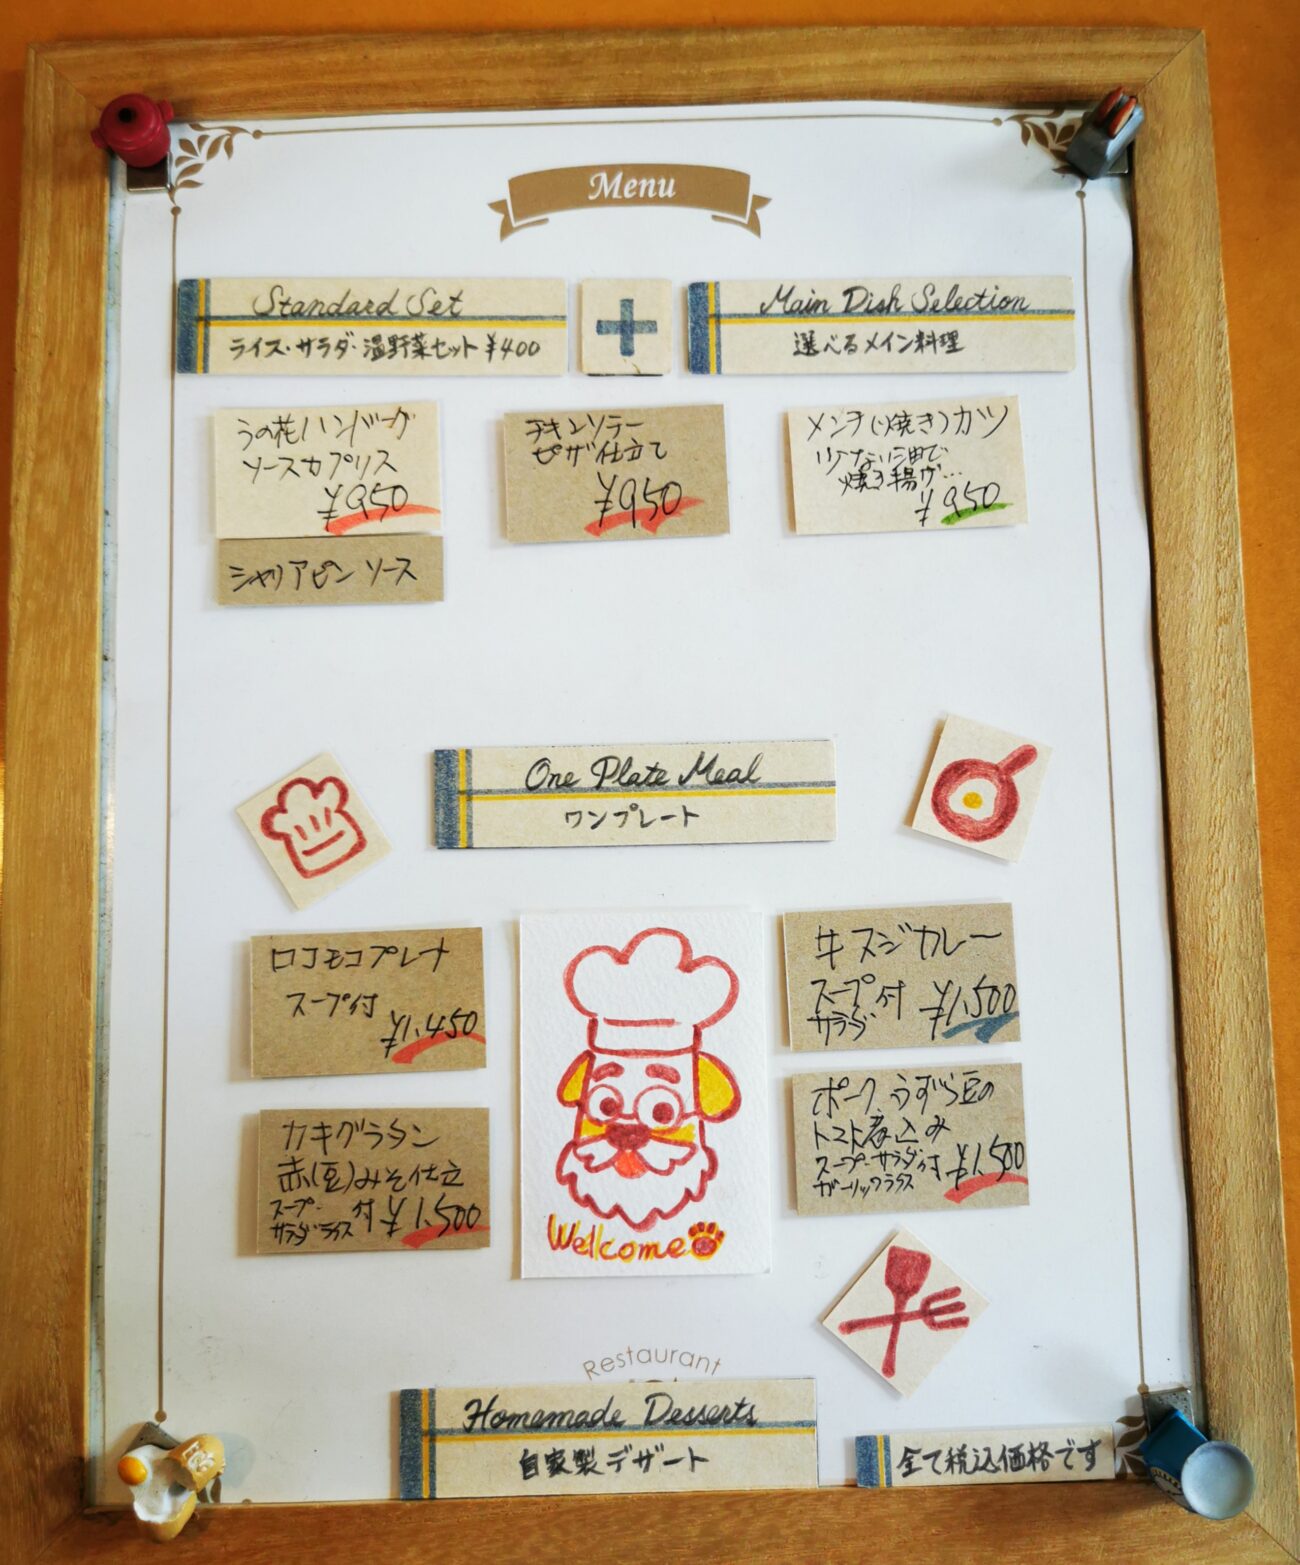 Menu
Standard Set
ライス・サラダ・温野菜セット ¥400
+
Main Dish Selection
選べるメイン料理
うの花ハンバーグ
ソースカプリス
¥950
シャリアピン ソース
チキンソテー
ピザ仕立て
¥950
メンチ(焼き)カツ
少ない油で
焼き揚げ…
¥950
One Plate Meal
ワンプレート
ロコモコプレート
スープ付
¥1.450
カキグラタン
赤(豆)みそ仕立
スープ・
サラダ ライス 付 ¥1.500
Welcome
牛スジカレー
スープ 付 ¥1.500
サラダ
ポーク うずら豆の
トマト煮込み
スープ・サラダ付 ¥1.500
ガーリックライス
Restaurant
Homemade Desserts
自家製デザート
全て税込価格です